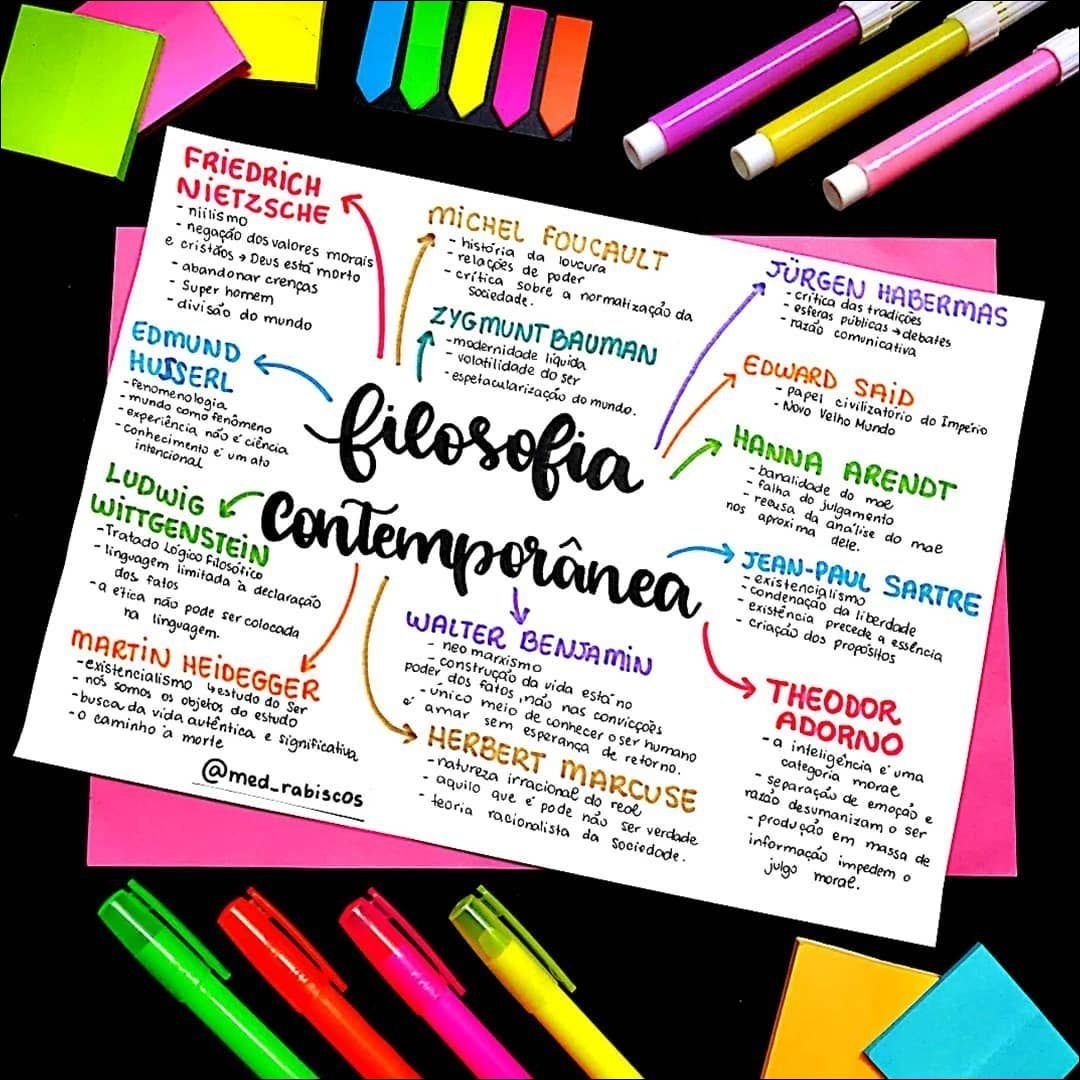 FRIEDRICH
NIETZSCHE
- niilismo
- negação dos valores morais
e cristãos → Deus está morto
- abandonar crenças
- Super homem
- divisão do mundo
MICHEL FOUCAULT
- história da loucura
- relações de poder
- crítica sobre a normatização da
sociedade.
ZYGMUNT BAUMAN
- modernidade líquida
- volatilidade do ser
- espetacularização do mundo.
JÜRGEN HABERMAS
- crítica das tradições
- esferas públicas → debates
- razão comunicativa
EDWARD SAID
- papel civilizatório do Império
- Novo Velho Mundo
HANNA ARENDT
- banalidade do mal
- falha do julgamento
- recusa da análise do mal
nos aproxima dele.
EDMUND
HUSSERL
- fenomenologia
- mundo como fenômeno
- experiência não é ciência
- conhecimento é um ato
intencional
filosofia
contemporânea
LUDWIG
WITTGENSTEIN
- Tratado Lógico Filosófico
- linguagem limitada à declaração
dos fatos
- a ética não pode ser colocada
na linguagem.
JEAN-PAUL SARTRE
- existencialismo
- condenação da liberdade
- existência precede a essência
- criação dos propósitos
MARTIN HEIDEGGER
- existencialismo ↳ estudo do Ser
- nós somos os objetos do estudo
- busca da vida autêntica e significativa
- o caminho à morte
WALTER BENJAMIN
- neo marxismo
- construção da vida está no
poder dos fatos, não nas convicções
- único meio de conhecer o ser humano
é amar sem esperança de retorno.
HERBERT MARCUSE
- natureza irracional do real
- aquilo que é pode não ser verdade
- teoria racionalista da sociedade.
THEODOR
ADORNO
- a inteligência é uma
categoria moral
- separação de emoção e
razão desumanizam o ser
- produção em massa de
informação impedem o
julgo moral.
@med_rabiscos